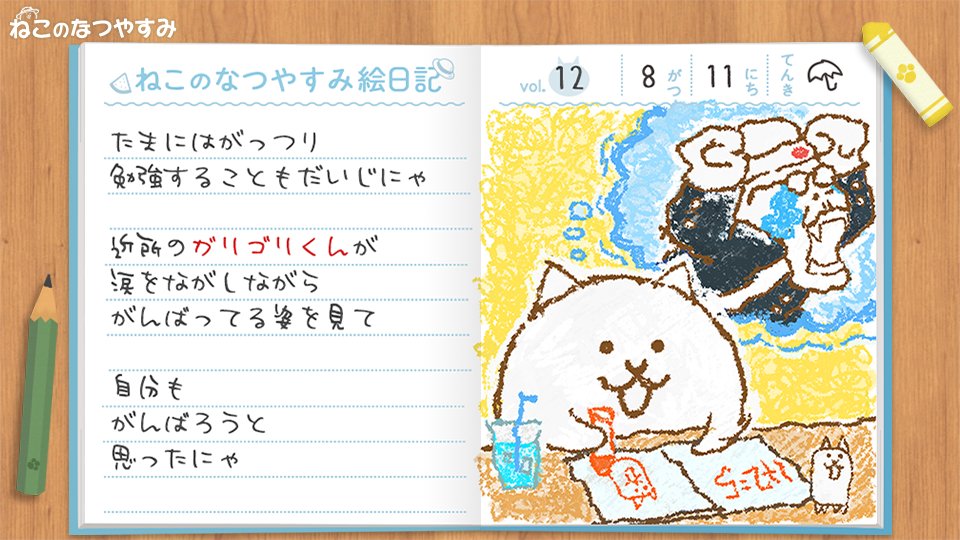 ねこのなつやすみ
ねこのなつやすみ絵日記
たまにはがっつり
勉強することもだいじにゃ
近所のガリゴリくんが
涙をながしながら
がんばってる姿を見て
自分も
がんばろうと
思ったにゃ
vol. 12 8 がつ 11 にち てんき